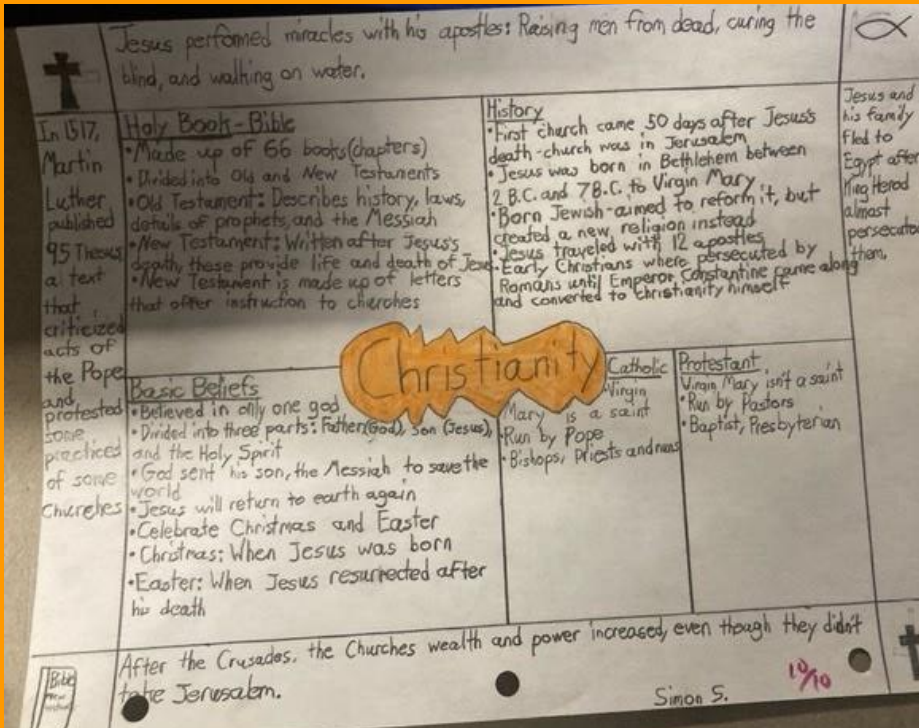 Jesus performed miracles with his apostles: Raising men from dead, curing the
blind, and walking on water.
In 1517,
Martin
Luther
published
95 Theses
a text
that
criticized
acts of
the Pope
and
protested
some
practiced
of some
Churches
Holy Book - Bible
• Made up of 66 books (chapters)
• Divided into Old and New Testaments
• Old Testament: Describes history, laws,
details of prophets, and the Messiah
• New Testament: Written after Jesus's
death, these provide life and death of Jesus
• New Testament is made up of letters
that offer instruction to cherches
History
• First church came 50 days after Jesus's
death - church was in Jerusalem
• Jesus was born in Bethlehem between
2 B.C. and 7 B.C. to Virgin Mary
• Born Jewish - aimed to reform it, but
created a new religion instead
• Jesus traveled with 12 apostles
• Early Christians where persecuted by
Romans until Emperor Constantine came along
and converted to Christianity himself
Jesus and
his family
fled to
Egypt after
King Herod
almost
persecuted
them.
Christianity
Basic Beliefs
• Believed in only one god
• Divided into three parts: Father (God), Son (Jesus),
and the Holy Spirit
• God sent his son, the Messiah to save the
world
• Jesus will return to earth again
• Celebrate Christmas and Easter
• Christmas: When Jesus was born
• Easter: When Jesus resurrected after
his death
Catholic
• Virgin
Mary is a saint
• Run by Pope
• Bishops, priests and nuns
Protestant
Virgin Mary isn't a saint
• Run by Pastors
• Baptist, Presbyterian
Bible
After the Crusades, the Churches wealth and power increased, even though they didn't
take Jerusalem.
Simon S.
10/10